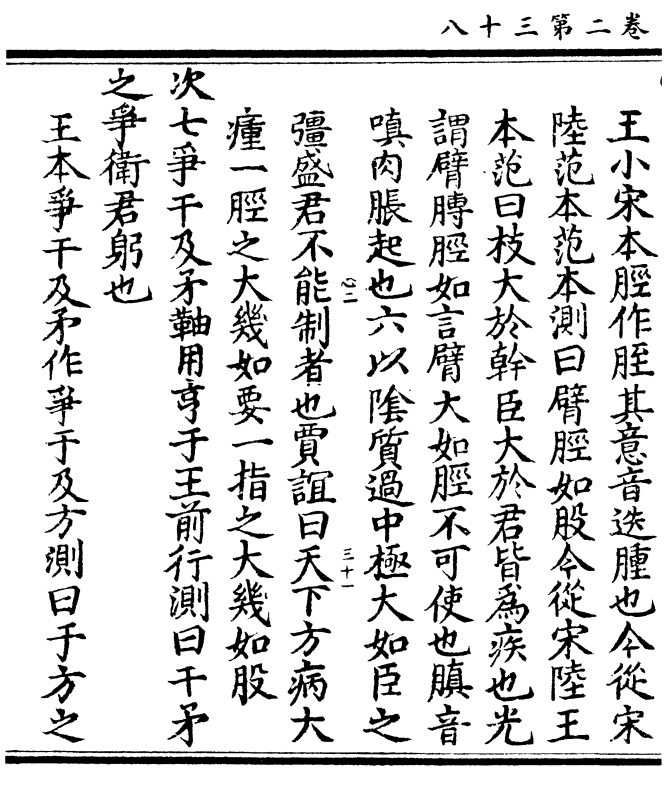 八十三第二卷
王小宋本脛作胵其意音迭腫也今從宋
陸范本范本測曰臂脛如股今從宋陸王
本范曰枝大於幹臣大於君皆爲疾也光
謂臂膊脛如言臂大如脛不可使也䐜音
嗔肉脹起也六以陰質過中極大如臣之
彊盛君不能制者也賈誼曰天下方病大
心二
三十一
瘇一脛之大幾如要一指之大幾如股
次七爭干及矛軸用亨于王前行測曰干矛
之爭衛君躬也
王本爭干及矛作爭于及方測曰于方之